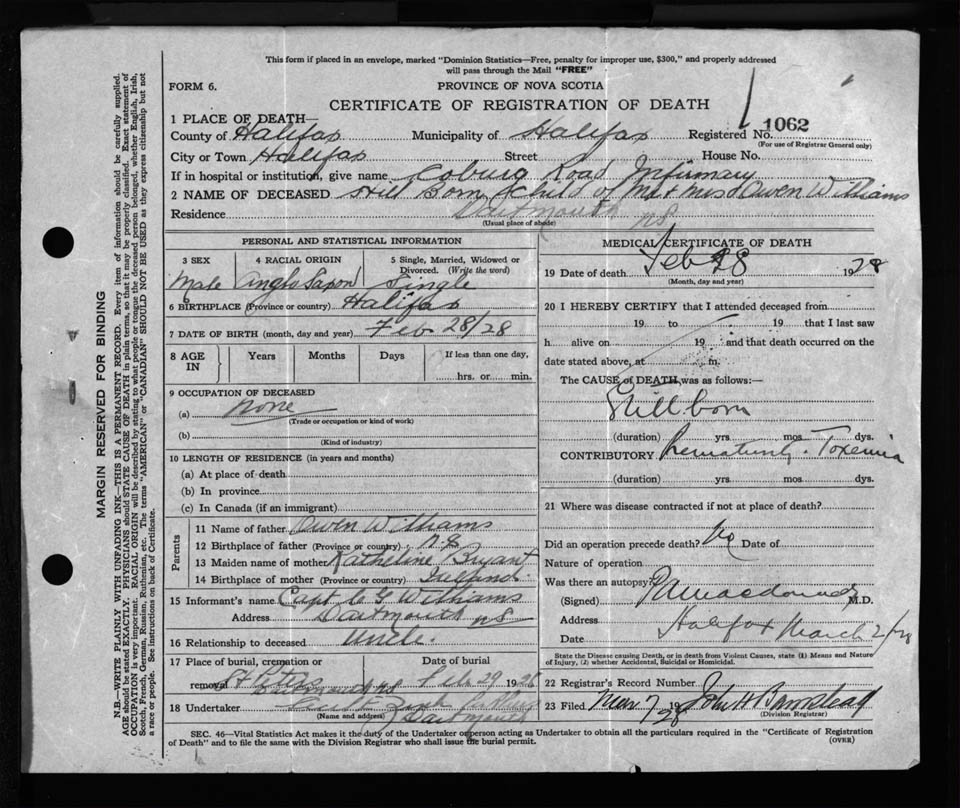 This form if placed in an envelope, marked "Dominion Statistics—Free, penalty for improper use, $300," and properly addressed
will pass through the Mail "FREE"
FORM 6.
PROVINCE OF NOVA SCOTIA
CERTIFICATE OF REGISTRATION OF DEATH
1 PLACE OF DEATH—
County of Halifax Municipality of Halifax Registered No. 1062
(For use of Registrar General only)
City or Town Halifax Street House No.
If in hospital or institution, give name Coburg Road Infirmary
2 NAME OF DECEASED Still Born Child of Mr & Mrs Owen Williams
Residence Dartmouth NS
(Usual place of abode)
PERSONAL AND STATISTICAL INFORMATION
3 SEX 4 RACIAL ORIGIN 5 Single, Married, Widowed or
Divorced. (Write the word)
Male Anglo Saxon Single
6 BIRTHPLACE (Province or country) Halifax
7 DATE OF BIRTH (month, day and year) Feb 28/28
8 AGE IN Years Months Days If less than one day,
hrs. or min.
9 OCCUPATION OF DECEASED
(a) None
(Trade or occupation or kind of work)
(b)
(Kind of industry)
10 LENGTH OF RESIDENCE (in years and months)
(a) At place of death
(b) In province
(c) In Canada (if an immigrant)
Parents
11 Name of father Owen Williams
12 Birthplace of father (Province or country) NS
13 Maiden name of mother Katheline Bryant
14 Birthplace of mother (Province or country)
15 Informant's name Capt C G Williams
Address Dartmouth NS
16 Relationship to deceased Uncle.
17 Place of burial, cremation or Date of burial
removal St Peters Feb 29 1928
Dartmouth NS
18 Undertaker
(Name and address) Dartmouth
MEDICAL CERTIFICATE OF DEATH
19 Date of death Feb 28 1928
(Month, day and year)
20 I HEREBY CERTIFY that I attended deceased from
19 to 19 that I last saw
h alive on 19 and that death occurred on the
date stated above, at m.
The CAUSE of DEATH was as follows:—
Stillborn
(duration) yrs. mos. dys.
CONTRIBUTORY Prematurity. Toxemia
(duration) yrs. mos. dys.
21 Where was disease contracted if not at place of death?
Did an operation precede death? No Date of
Nature of operation
Was there an autopsy?
(Signed) Macdonald M.D.
Address Halifax
Date March 2/28
State the Disease causing Death, or in death from Violent Causes, state (1) Means and Nature
of Injury, (2) whether Accidental, Suicidal or Homicidal.
22 Registrar's Record Number
23 Filed Mar 7 1928 John H
(Division Registrar)
SEC. 46—Vital Statistics Act makes it the duty of the Undertaker or person acting as Undertaker to obtain all the particulars required in the "Certificate of Registration
of Death" and to file the same with the Division Registrar who shall issue the burial permit.
(OVER)
MARGIN RESERVED FOR BINDING
N.B.—WRITE PLAINLY WITH UNFADING INK—THIS IS A PERMANENT RECORD. Every item of information should be carefully supplied.
AGE should be stated EXACTLY. PHYSICIANS should STATE CAUSE OF DEATH in plain terms, so that it may be properly classified. Exact statement of
OCCUPATION is very important. RACIAL ORIGIN will be described by stating to what people or tongue the deceased person belonged, whether English, Irish,
Scotch, French, German, Russian, Ruthenian, etc. The terms "AMERICAN" or "CANADIAN" SHOULD NOT BE USED as they express citizenship but not
a race or people. See instructions on back of Certificate.